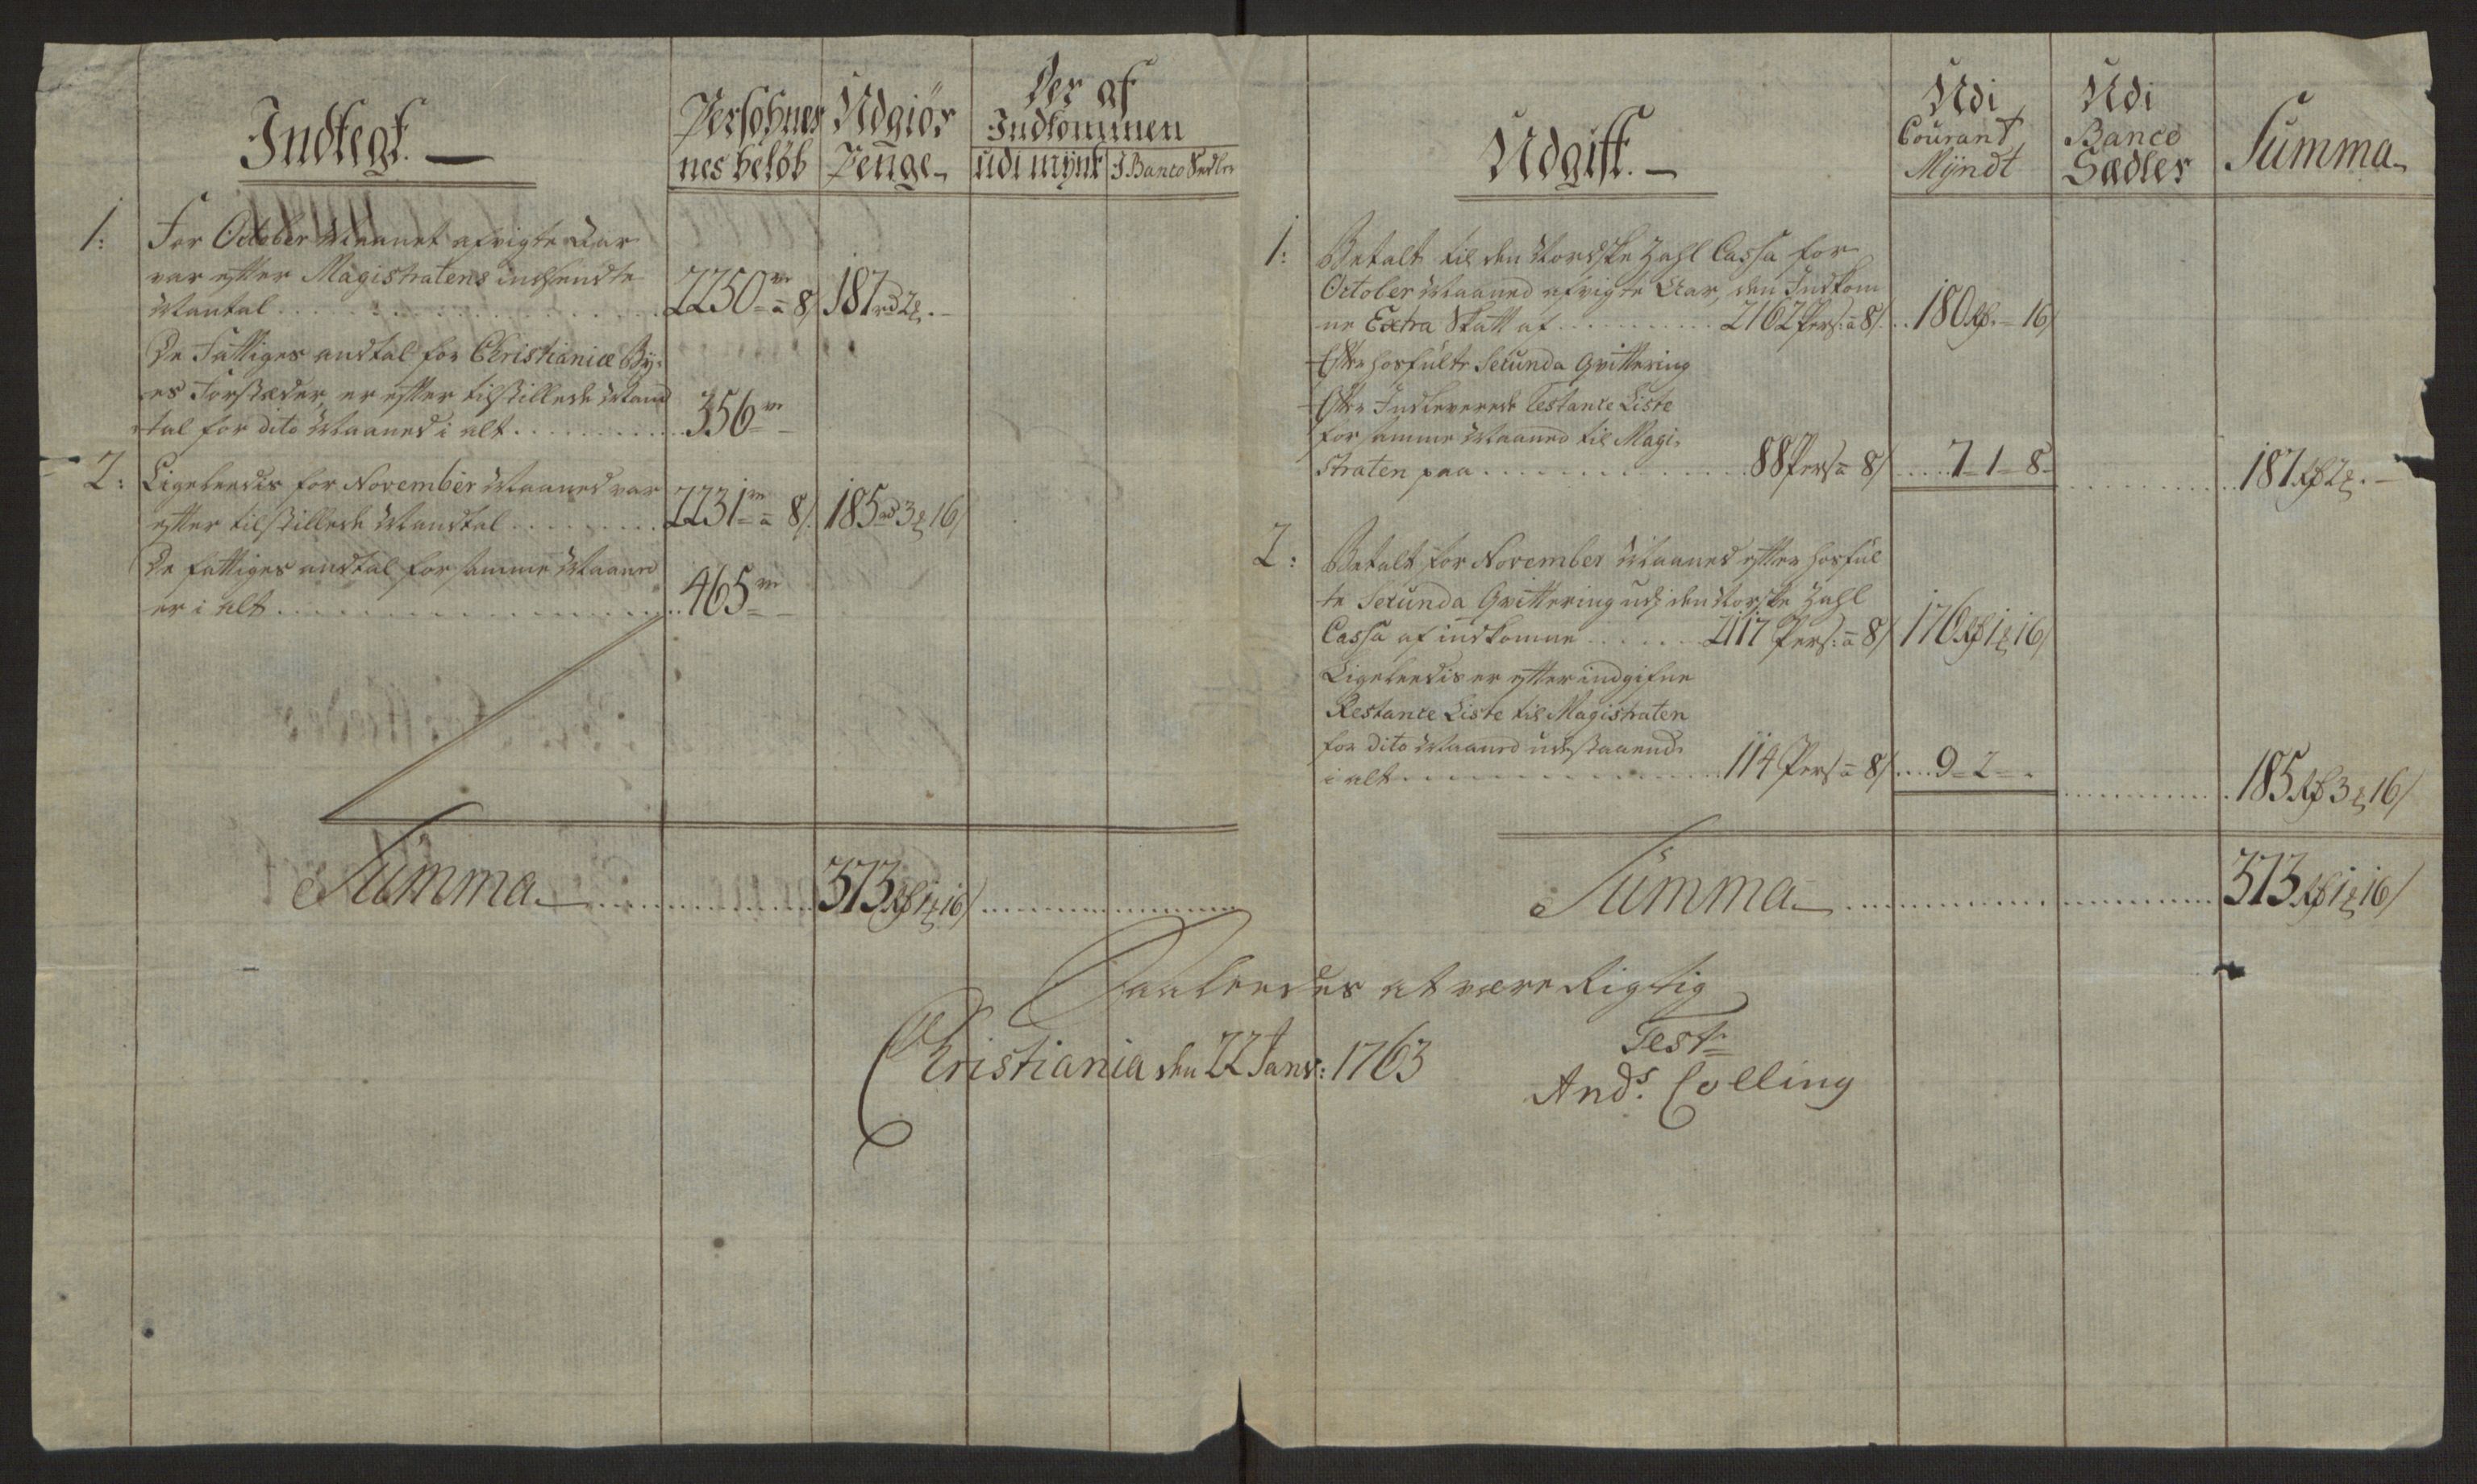 Indtegt.
Persohner
nes beløb
Udgiør
Penge
Der af
Indkommen
udi mÿnt
I Banco Sedler
1: For October Maanet afvigte Aar
var efter Magistratens indsendte
Mantal 2250 à 8/ 187 rd 2 .-
De Fattiges andtal for Christianiæ Bÿ-
es Forstæder, er efter tilstillede Mand
tal for dito Maaned i alt 356
2: Ligeleedis for November Maaned var
efter tilstillede Mandtal 2231 à 8/ 185 rd 3 16/
De fattiges andtal for samme Maaned
er i alt 465
Summa 373 Rd 1 16/
Udgift.
Udi
Courant
Mÿndt
Udi
Banco
Sædler
Summa
1: Betalt til den Nordske Zahl Cassa for
October Maaned afvigte Aar, den Indkom
ne Extra Skatt af 2162 Pers: à 8/ 180 Rd - 16/
Efter hosfulte Secunda Qvittering
Efter Indleverede Restance Liste
for samme Maaned til Magi-
straten paa 88 Pers à 8/ 7 - 1 - 8 - 187 Rd 2 . -
2: Betalt for November Maaned efter hosful
te Secunda Qvittering udj den Norske Zahl
Cassa af indkomne 2117 Pers: à 8/ 176 Rd 1 16/
Ligeleedis er efter indgifne
Restance Liste til Magistraten
for dito Maaned udestaaende
i alt 114 Pers à 8/ 9 - 2 - . 185 Rd 3 16/
Summa 373 Rd 1 16/
Saaleedes at være Rigtig
Christiania den 22 Janv: 1763
Test:
And.s Colling